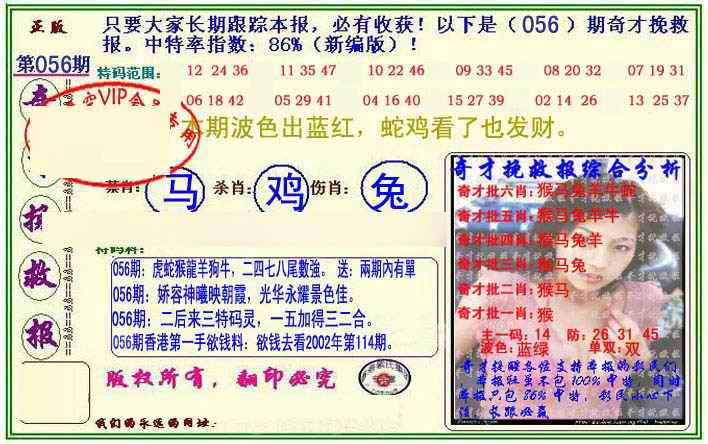 正版
只要大家长期跟踪本报，必有收获！以下是（056）期奇才挽救
报。中特率指数：86%（新编版）！
第056期
特码范围：
12 24 36 11 35 47 10 22 46 09 33 45 08 20 32 07 19 31
06 18 42 05 29 41 04 16 40 15 27 39 02 14 26 13 25 37
VIP会
本期波色出蓝红，蛇鸡看了也发财。
马 杀肖：鸡 伤肖：兔
救
报
056期：虎蛇猴龍羊狗牛，二四七八尾數強。送：兩期內有單
056期：娇容神曦映朝霞，光华永耀景色佳。
056期：二后来三特码灵，一五加得三二合。
056期香港第一手欲钱料：欲钱去看2002年第114期。
版权所有，翻印必究
我们的永远的网址：
奇才挽救报综合分析
奇才批六肖：猴马兔羊牛蛇
奇才批五肖：猴马兔羊牛
奇才批四肖：猴马兔羊
奇才批三肖：猴马兔
奇才批二肖：猴马
奇才批一肖：猴
主一码：14 防：26 31 45
波色：蓝绿 单双：双
奇才挽救各位支持本报的彩民们
本报往虽不包100%中特，同时
本报只包86%中特，彩民小心下
注，长跟必赢